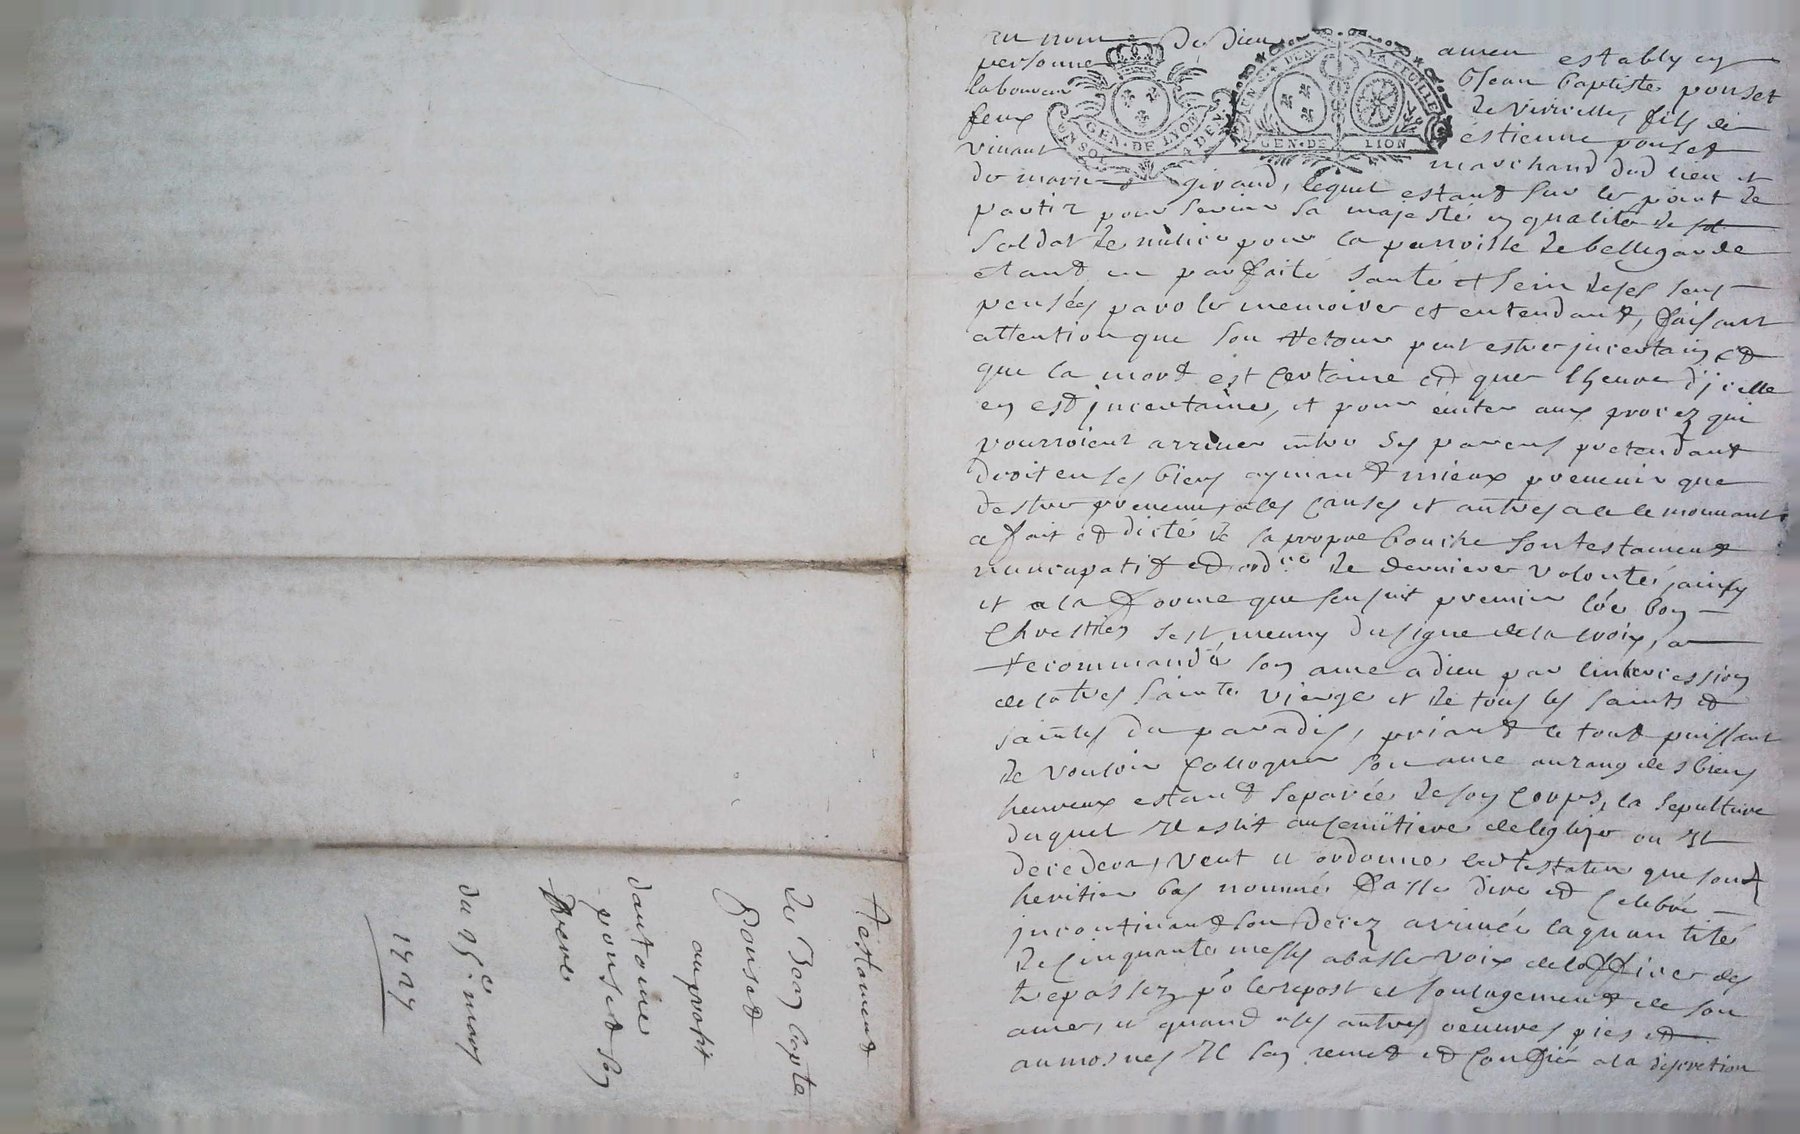 au nom de Dieu amen estably en
personne Jean baptiste ponset
laboureur de viricelle, fils de
feux estienne ponset
vivant marchand dud lieu et
de marie giraud, lequel estant sur le point de
partir pour servir sa majesté en qualité de
soldat de milice pour la parroisse de bellegarde
estant en parfaite santé et sein de ses sens
pensées parolle memoire et entendant, faisant
attention que son retour peut estre jncertain et
que la mort est certaine et que l'heure d'jcelle
en est jncertaine, et pour éviter aux procez qui
pourroient arriver entre ses parens pretendant
droit en ses biens aymant mieux prevenir que
destre prevenu, a ces causes et autres a ce le mouvant
a fait et dicté de sa propre bouche son testament
nuncupatif et ordce de derniere volonté, jainsy
et a la forme que sensuit premier coe bon
Chrestien sest muny du signe de la croix, a
recommandé son ame a dieu par lintercession
de la tres sainte vierge et de tous les saints et
saintes du paradis, priant le tout puissant
de vouloir colloquer son ame au rang des biens
heureux estant separée de son corps, la sepulture
duquel Il eslit au cemitiere de leglize ou Il
decedera, veut et ordonne led testateur que sond
heritier bas nommé fasse dire et celebre
jncontinant son decez arrivée la quantité
de cinquante messes a basse voix de loffice des
trepassez po le repost et soulagement de son
ame, et quand a ses autres oeuvres pies et
aumosnes Il sen remet et confie a la discretion
GEN · DE LYON
UN SOL
4 DEN
UN S. 4 DEN. LA FEUILLE
GEN · DE LION
Testament
de Jean bapte
Ponset
au profit
dantoine
ponset son
frere
du 15e mars
1727